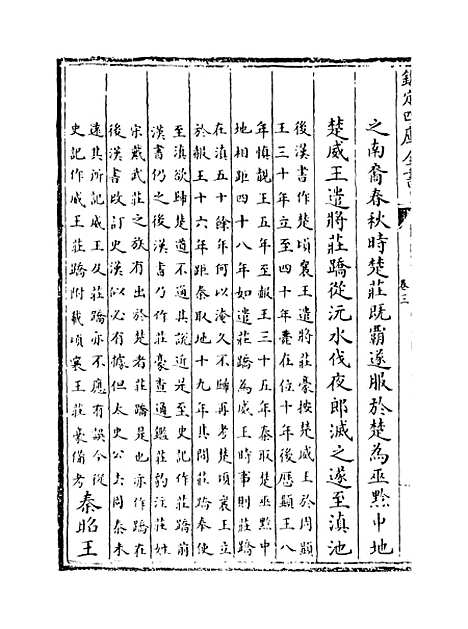 欽定四庫全書
卷三
之南裔春秋時楚莊既霸遂服於楚為巫黔中地
楚威王遣將莊蹻從沅水伐夜郎滅之遂至滇池
後漢書作楚頃襄王遣將莊豪按楚威王於周顯
王三十年立至四十年薨在位十年後歷顯王八
年慎靚王五年至赧王三十五年秦取楚巫黔中
地相距四十八年如遣莊蹻為威王時事則莊蹻
在滇五十餘年何以淹久不歸再考楚頃襄王立
於赧王十六年距秦取地十九年其間莊蹻奉使
至滇欲歸楚道不通其說近是至史記作莊蹻前
漢書仍之後漢書乃作莊豪查通鑑莊豹注莊姓
宋戴武莊之族有出於楚者莊蹻是也亦作蹻在
後漢書改訂史漢似必有據但太史公去周秦未
遠其所記威王及莊蹻亦不應有誤今從
史記作威王莊蹻附載頃襄王莊豪備考
秦昭王